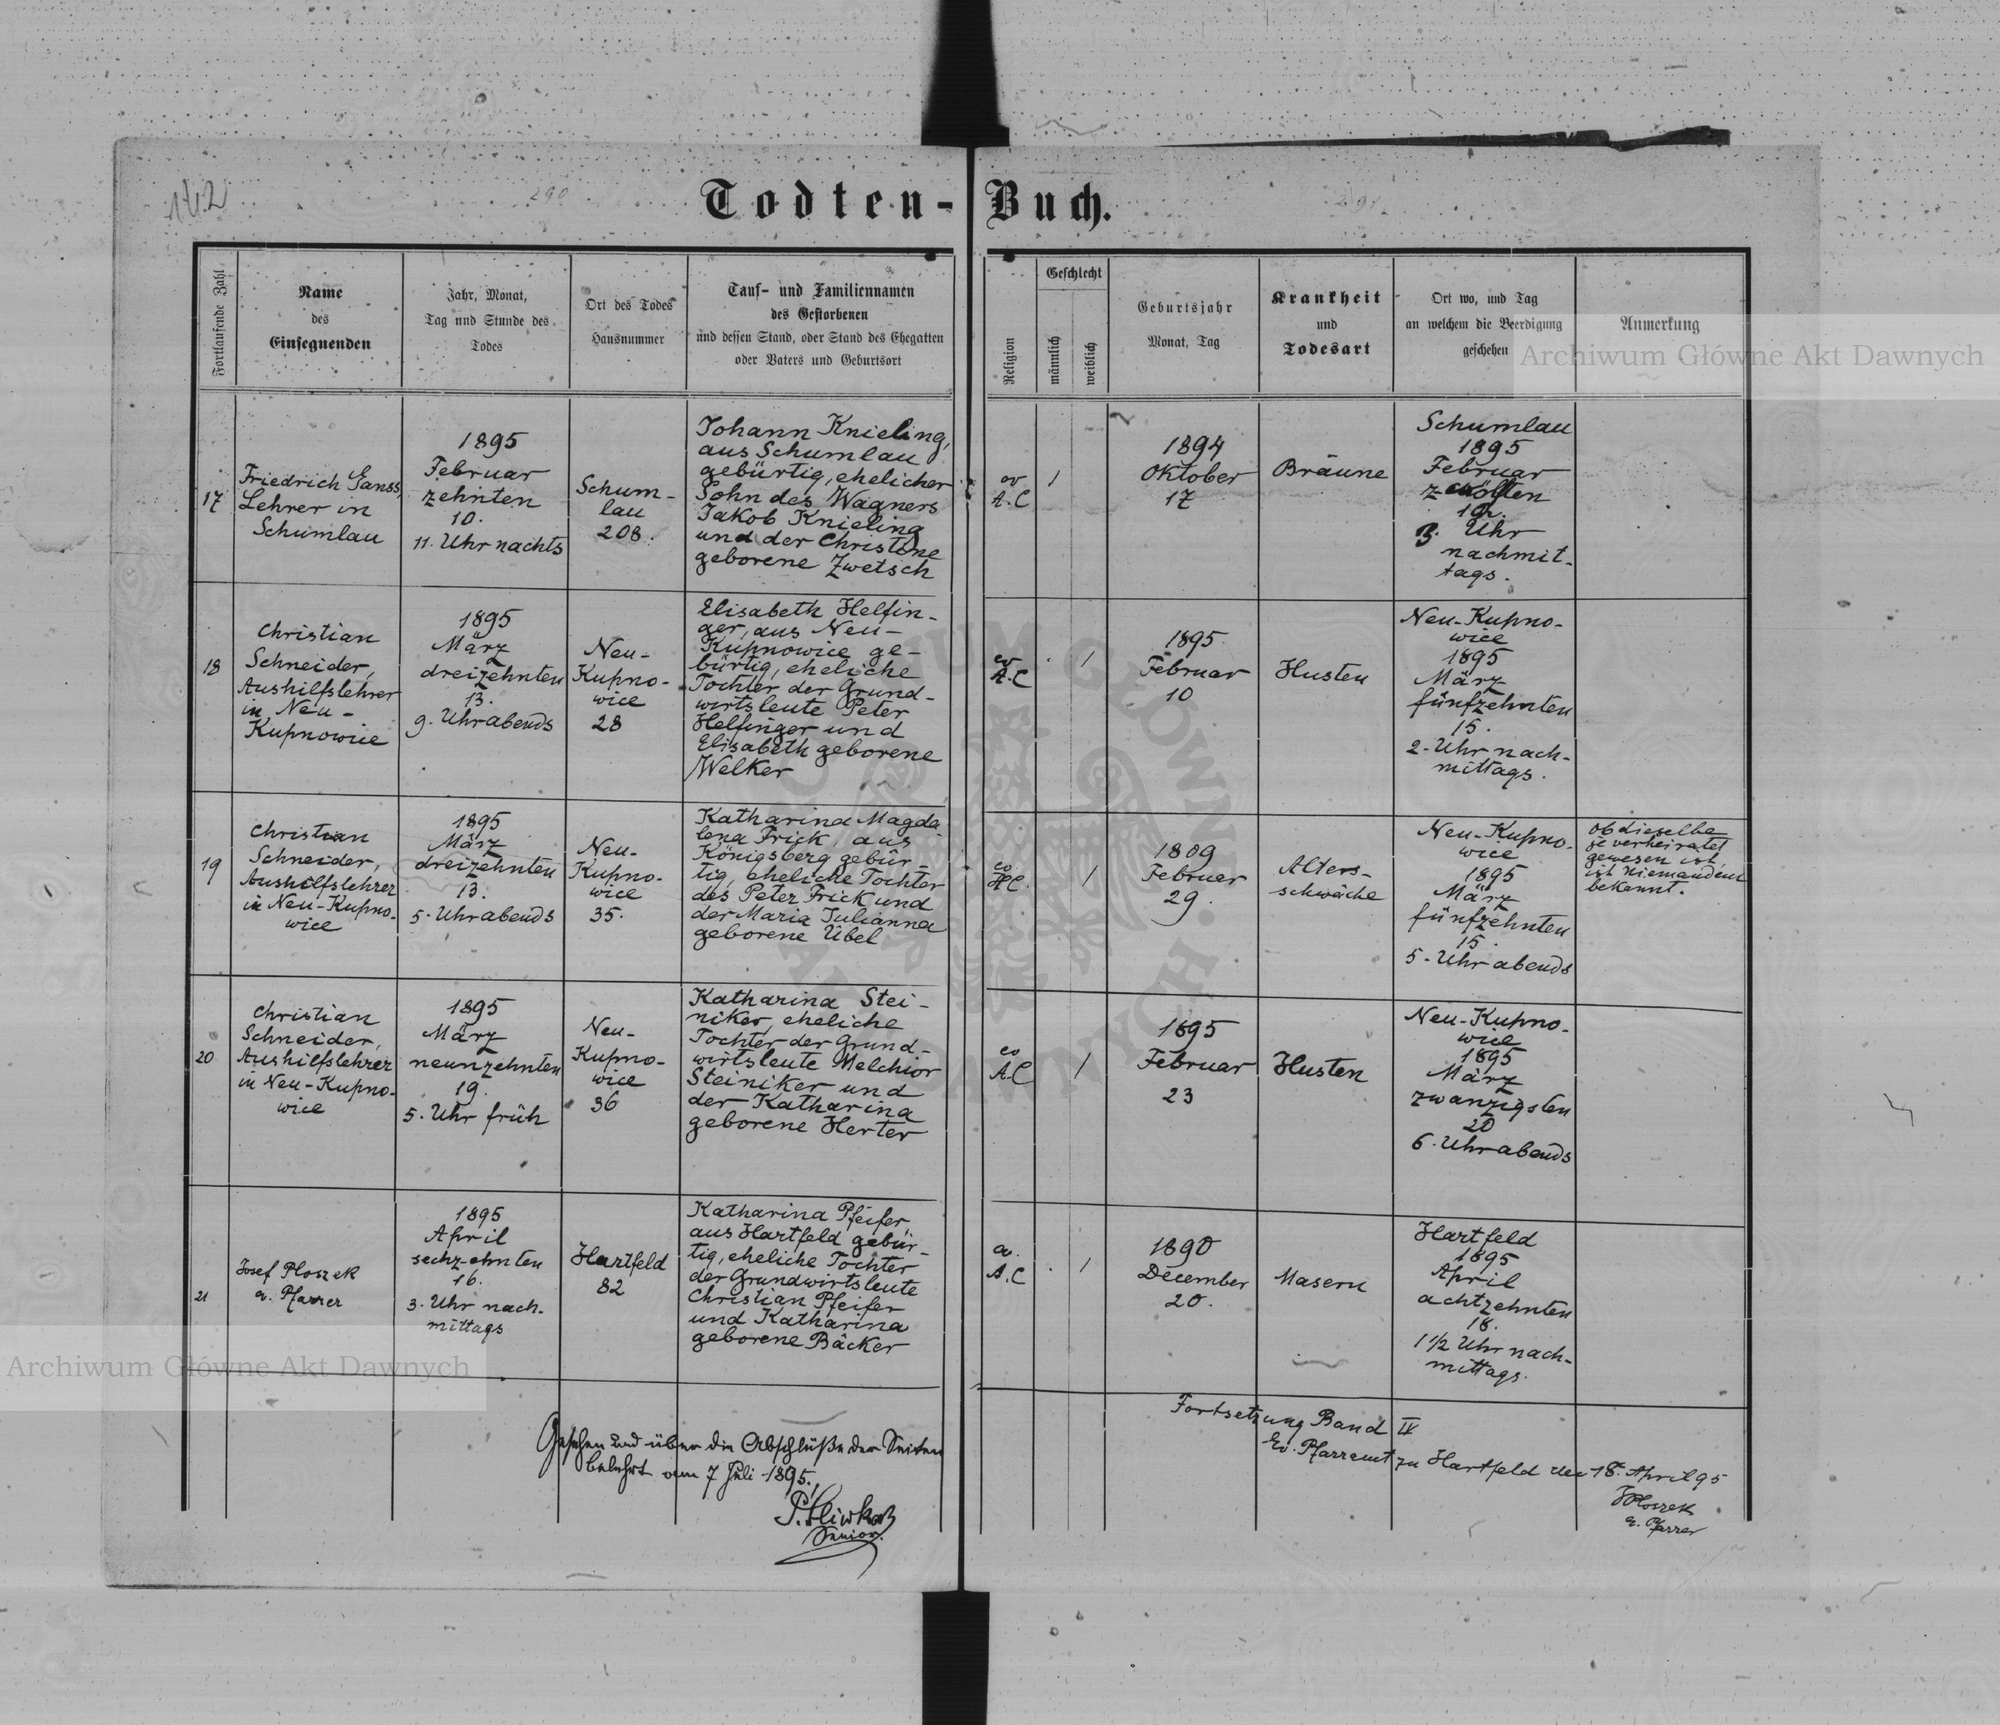 142
290
291
Todten-Buch.
Fortlaufende Zahl
Name
des
Einsegnenden
Jahr, Monat,
Tag und Stunde des
Todes
Ort des Todes
Hausnummer
Tauf- und Familiennamen
des Gestorbenen
und dessen Stand, oder Stand des Ehegatten
oder Vaters und Geburtsort
Religion
Geschlecht
männlich
weiblich
Geburtsjahr
Monat, Tag
Krankheit
und
Todesart
Ort wo, und Tag
an welchem die Beerdigung
geschehen
Anmerkung
Archiwum Główne Akt Dawnych
17
Friedrich Ganss,
Lehrer in
Schumlau
1895
Februar
zehnten
10.
11. Uhr nachts
Schum-
lau
208.
Johann Knieling,
aus Schumlau
gebürtig, ehelicher
Sohn des Wagners
Jakob Knieling
und der Christine
geborene Zwetsch
ev
A.C
/
1894
Oktober
17
Bräune
Schumlau
1895
Februar
zwölften
12.
3. Uhr
nachmit-
tags.
18
Christian
Schneider,
Aushilfslehrer
in Neu-
Kupnowice
1895
März
dreizehnten
13.
9. Uhr abends
Neu-
Kupno-
wice
28
Elisabeth Helfin-
ger, aus Neu-
Kupnowice ge-
bürtig, eheliche
Tochter der Grund-
wirtsleute Peter
Helfinger und
Elisabeth geborene
Welker
ev
A.C
/
1895
Februar
10
Husten
Neu-Kupno-
wice
1895
März
fünfzehnten
15.
2. Uhr nach-
mittags.
19
Christian
Schneider,
Aushilfslehrer
in Neu-Kupno-
wice
1895
März
dreizehnten
13.
5. Uhr abends
Neu-
Kupno-
wice
35.
Katharina Magda
lena Frick, aus
Königsberg gebür-
tig, eheliche Tochter
des Peter Frick und
der Maria Julianna
geborene Übel
ev
H.C.
/
1809
Februar
29.
Alters-
schwäche
Neu-Kupno-
wice
1895
März
fünfzehnten
15.
5. Uhr abends
Ob dieselbe
je verheiratet
gewesen ist,
ist Niemandem
bekannt.
20
Christian
Schneider,
Aushilfslehrer
in Neu-Kupno-
wice
1895
März
neunzehnten
19.
5. Uhr früh
Neu-
Kupno-
wice
36
Katharina Stei-
niker, eheliche
Tochter der Grund-
wirtsleute Melchior
Steiniker und
der Katharina
geborene Herter
ev
A.C
/
1895
Februar
23
Husten
Neu-Kupno-
wice
1895
März
zwanzigsten
20
6. Uhr abends
21
Josef Ploszek
ev. Pfarrer
1895
April
sechzehnten
16.
3. Uhr nach-
mittags
Hartfeld
82
Katharina Pfeifer,
aus Hartfeld gebür-
tig, eheliche Tochter
der Grundwirtsleute
Christian Pfeifer
und Katharina
geborene Bäcker
ev.
A.C
/
1890
December
20.
Masern
Hartfeld
1895
April
achtzehnten
18.
1 1/2 Uhr nach-
mittags.
Archiwum Główne Akt Dawnych
Gesehen und über die Abschlüße der Seiten
belehrt am 7 Juli 1895.
Senior.
Fortsetzung Band IV
Ev. Pfarramt zu Hartfeld den 18. April 95
JPloszek
ev. Pfarrer